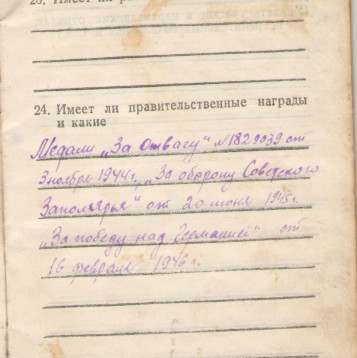 24. Имеет ли правительственные награды
и какие
Медали „За Отвагу“ №1829039 от
3 ноября 1944 г, „За оборону Советского
Заполярья“ от 20 июня 1945 г.
„За победу над Германией“ от
16 февраля 1946 г.